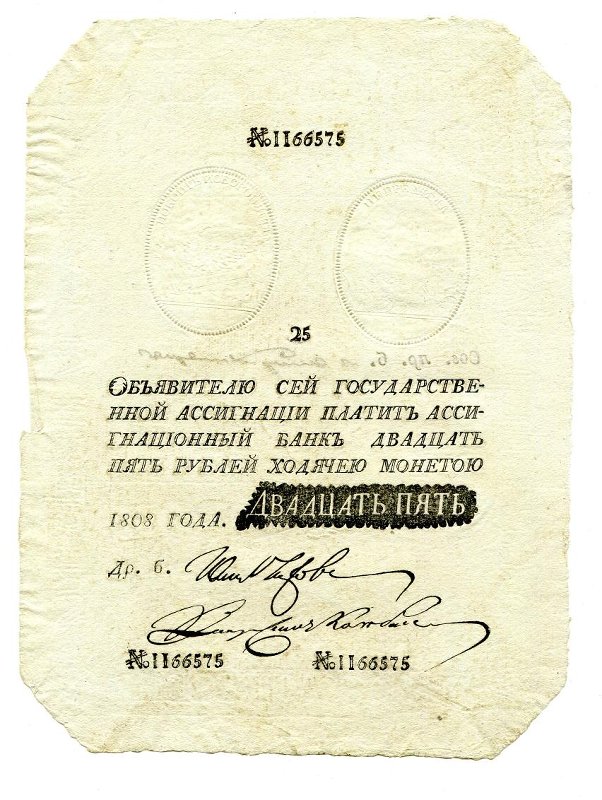 № 1166575
25
Объявителю сей государстве-
нной ассигнаціи платитъ асси-
гнаціонный банкъ двадцать
пять рублей ходячею монетою
1808 года. ДВАДЦАТЬ ПЯТЬ
Др. б.
№ 1166575 № 1166575